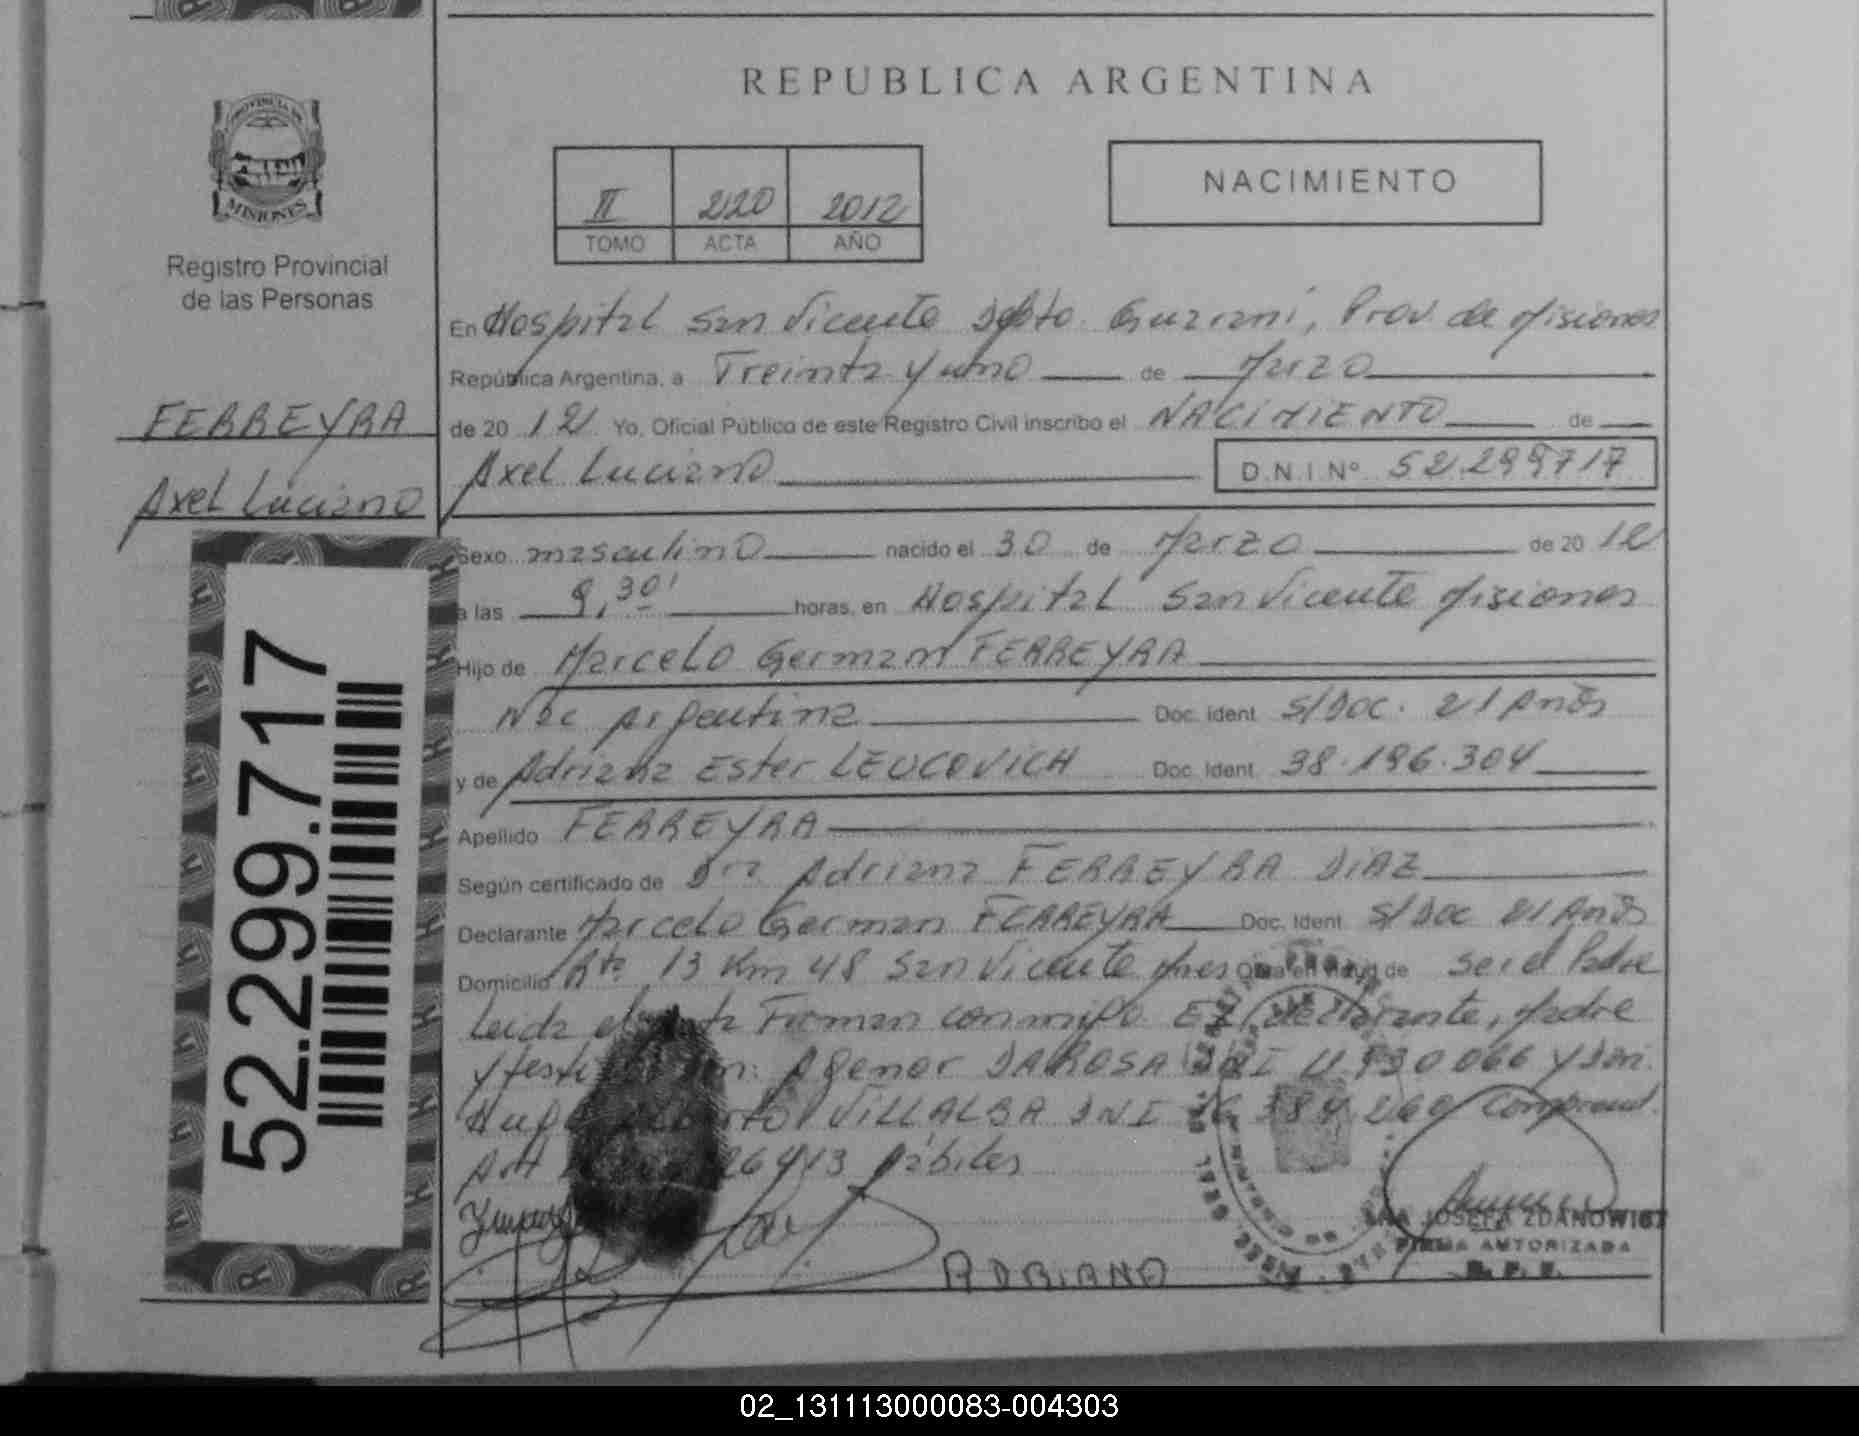 REPUBLICA ARGENTINA
PROVINCIA DE
MISIONES
Registro Provincial
de las Personas
II 220 2012
TOMO ACTA AÑO
NACIMIENTO
En Hospital San Vicente Dpto. Guarani, Prov. de Misiones
República Argentina, a Treinta y uno de Marzo
de 20 12 Yo, Oficial Público de este Registro Civil inscribo el NACIMIENTO de
FERREYRA
Axel Luciano D.N.I Nº 52.299717
Axel Luciano
Sexo masculino nacido el 30 de Marzo de 20 12
a las 9,30' horas, en Hospital San Vicente Misiones
Hijo de Marcelo German FERREYRA
Nac Argentina Doc. Ident S/Doc. 21 Años
y de Adriana Ester LEUCOVICH Doc. Ident. 38.196.304
Apellido FERREYRA
Según certificado de Dra Adriana FERREYRA DIAZ
Declarante Marcelo German FERREYRA Doc. Ident S/Doc 21 Años
Domicilio Rta 13 Km 48 San Vicente Mnes Obra en virtud de ser el Padre
Leida el Firman conmigo El declarante, Madre
y Agenor DAROSA DNI y
VILLALBA DNI
26413
52.299.717
ADRIANO
ANA JOSEFA ZDANOWICZ
FIRMA AUTORIZADA
R. P. P.
02_131113000083-004303